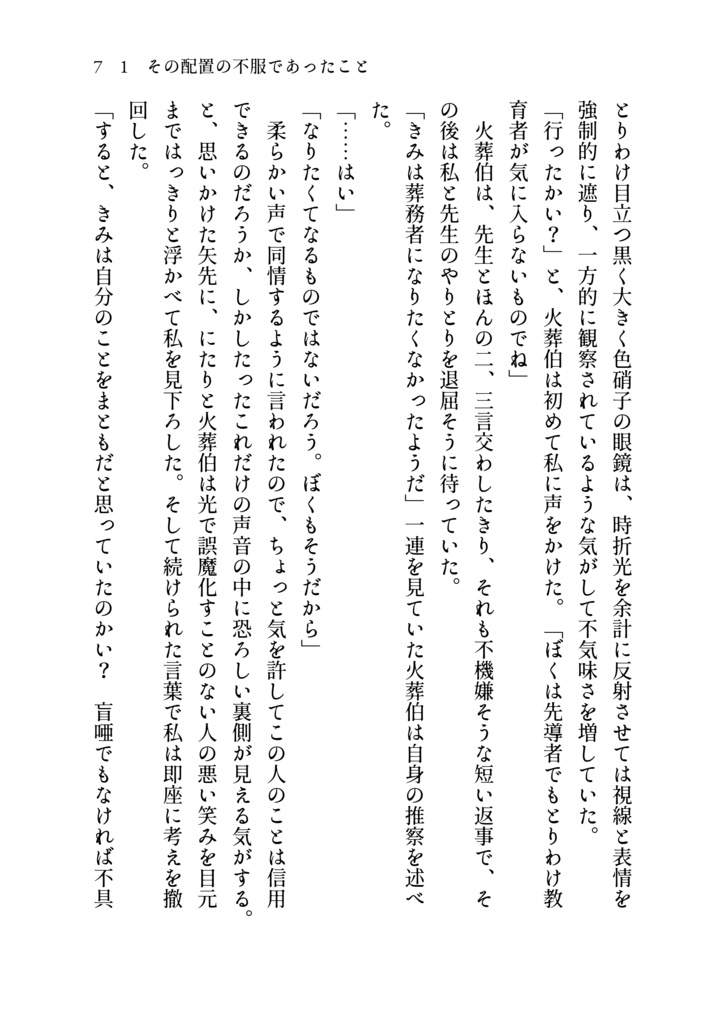 7　1　その配置の不服であったこと
とりわけ目立つ黒く大きく色硝子の眼鏡は、時折光を余計に反射させては視線と表情を
強制的に遮り、一方的に観察されているような気がして不気味さを増していた。
「行ったかい？」と、火葬伯は初めて私に声をかけた。「ぼくは先導者でもとりわけ教
育者が気に入らないものでね」
　火葬伯は、先生とほんの二、三言交わしたきり、それも不機嫌そうな短い返事で、そ
の後は私と先生のやりとりを退屈そうに待っていた。
「きみは葬務者になりたくなかったようだ」一連を見ていた火葬伯は自身の推察を述べ
た。
「……はい」
「なりたくてなるものではないだろう。ぼくもそうだから」
　柔らかい声で同情するように言われたので、ちょっと気を許してこの人のことは信用
できるのだろうか、しかしたったこれだけの声音の中に恐ろしい裏側が見える気がする。
と、思いかけた矢先に、にたりと火葬伯は光で誤魔化すことのない人の悪い笑みを目元
まではっきりと浮かべて私を見下ろした。そして続けられた言葉で私は即座に考えを撤
回した。
「すると、きみは自分のことをまともだと思っていたのかい？　盲唖でもなければ不具